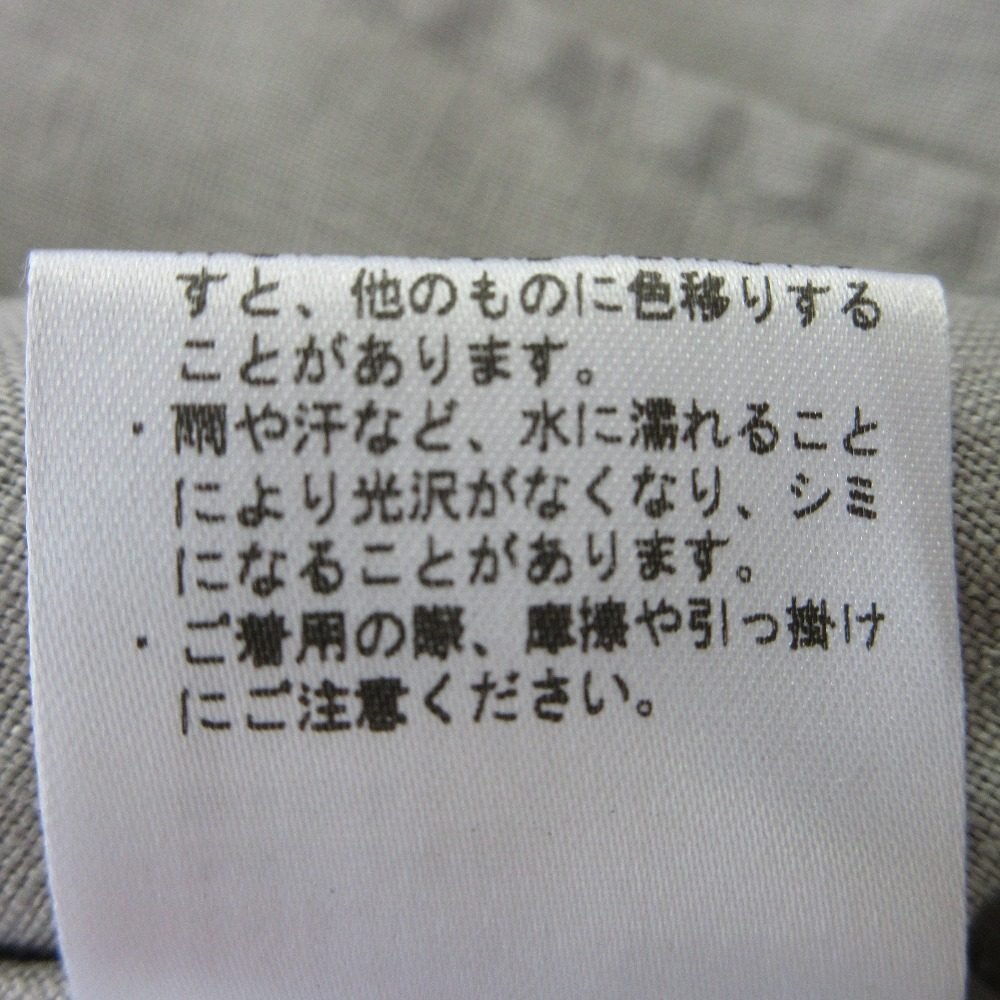 すと、他のものに色移りする
ことがあります。
・雨や汗など、水に濡れること
により光沢がなくなり、シミ
になることがあります。
・ご着用の際、摩擦や引っ掛け
にご注意ください。